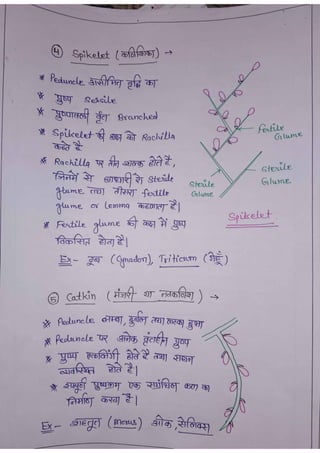 ④ Spikelet (कणिशिका) →
* Peduncle असीमित वृद्धि का
* पुष्प Sessile
* पुष्पावली वृंत Branched
* Spikelet की अक्ष को Rachilla
कहते है
* Rachilla पर तीन होते है,
जिनमें से आधारी दो Sterile
glume तथा तीसरा fertile
glume or lemma कहलाता है।
* Fertile glume की कक्ष में पुष्प
विकसित होता है।
Ex- दूब (Cynodon), Triticum (गेहूँ)
Fertile
Glume
Sterile
Glume
Sterile
Glume
Spikelet
⑤ Catkin (मंजरी या नतकणिश) →
* Peduncle लम्बा, दुर्बल तथा लटका हुआ
* Peduncle पर अनेक पुष्प
* पुष्प एकलिंगी होते है तथा सघन
व्यवस्थित होते है।
* सम्पूर्ण पुष्पक्रम एक संग्रथित फल का
निर्माण करता है।
Ex- शहतूत (Morus) ओक, सेलिक्स